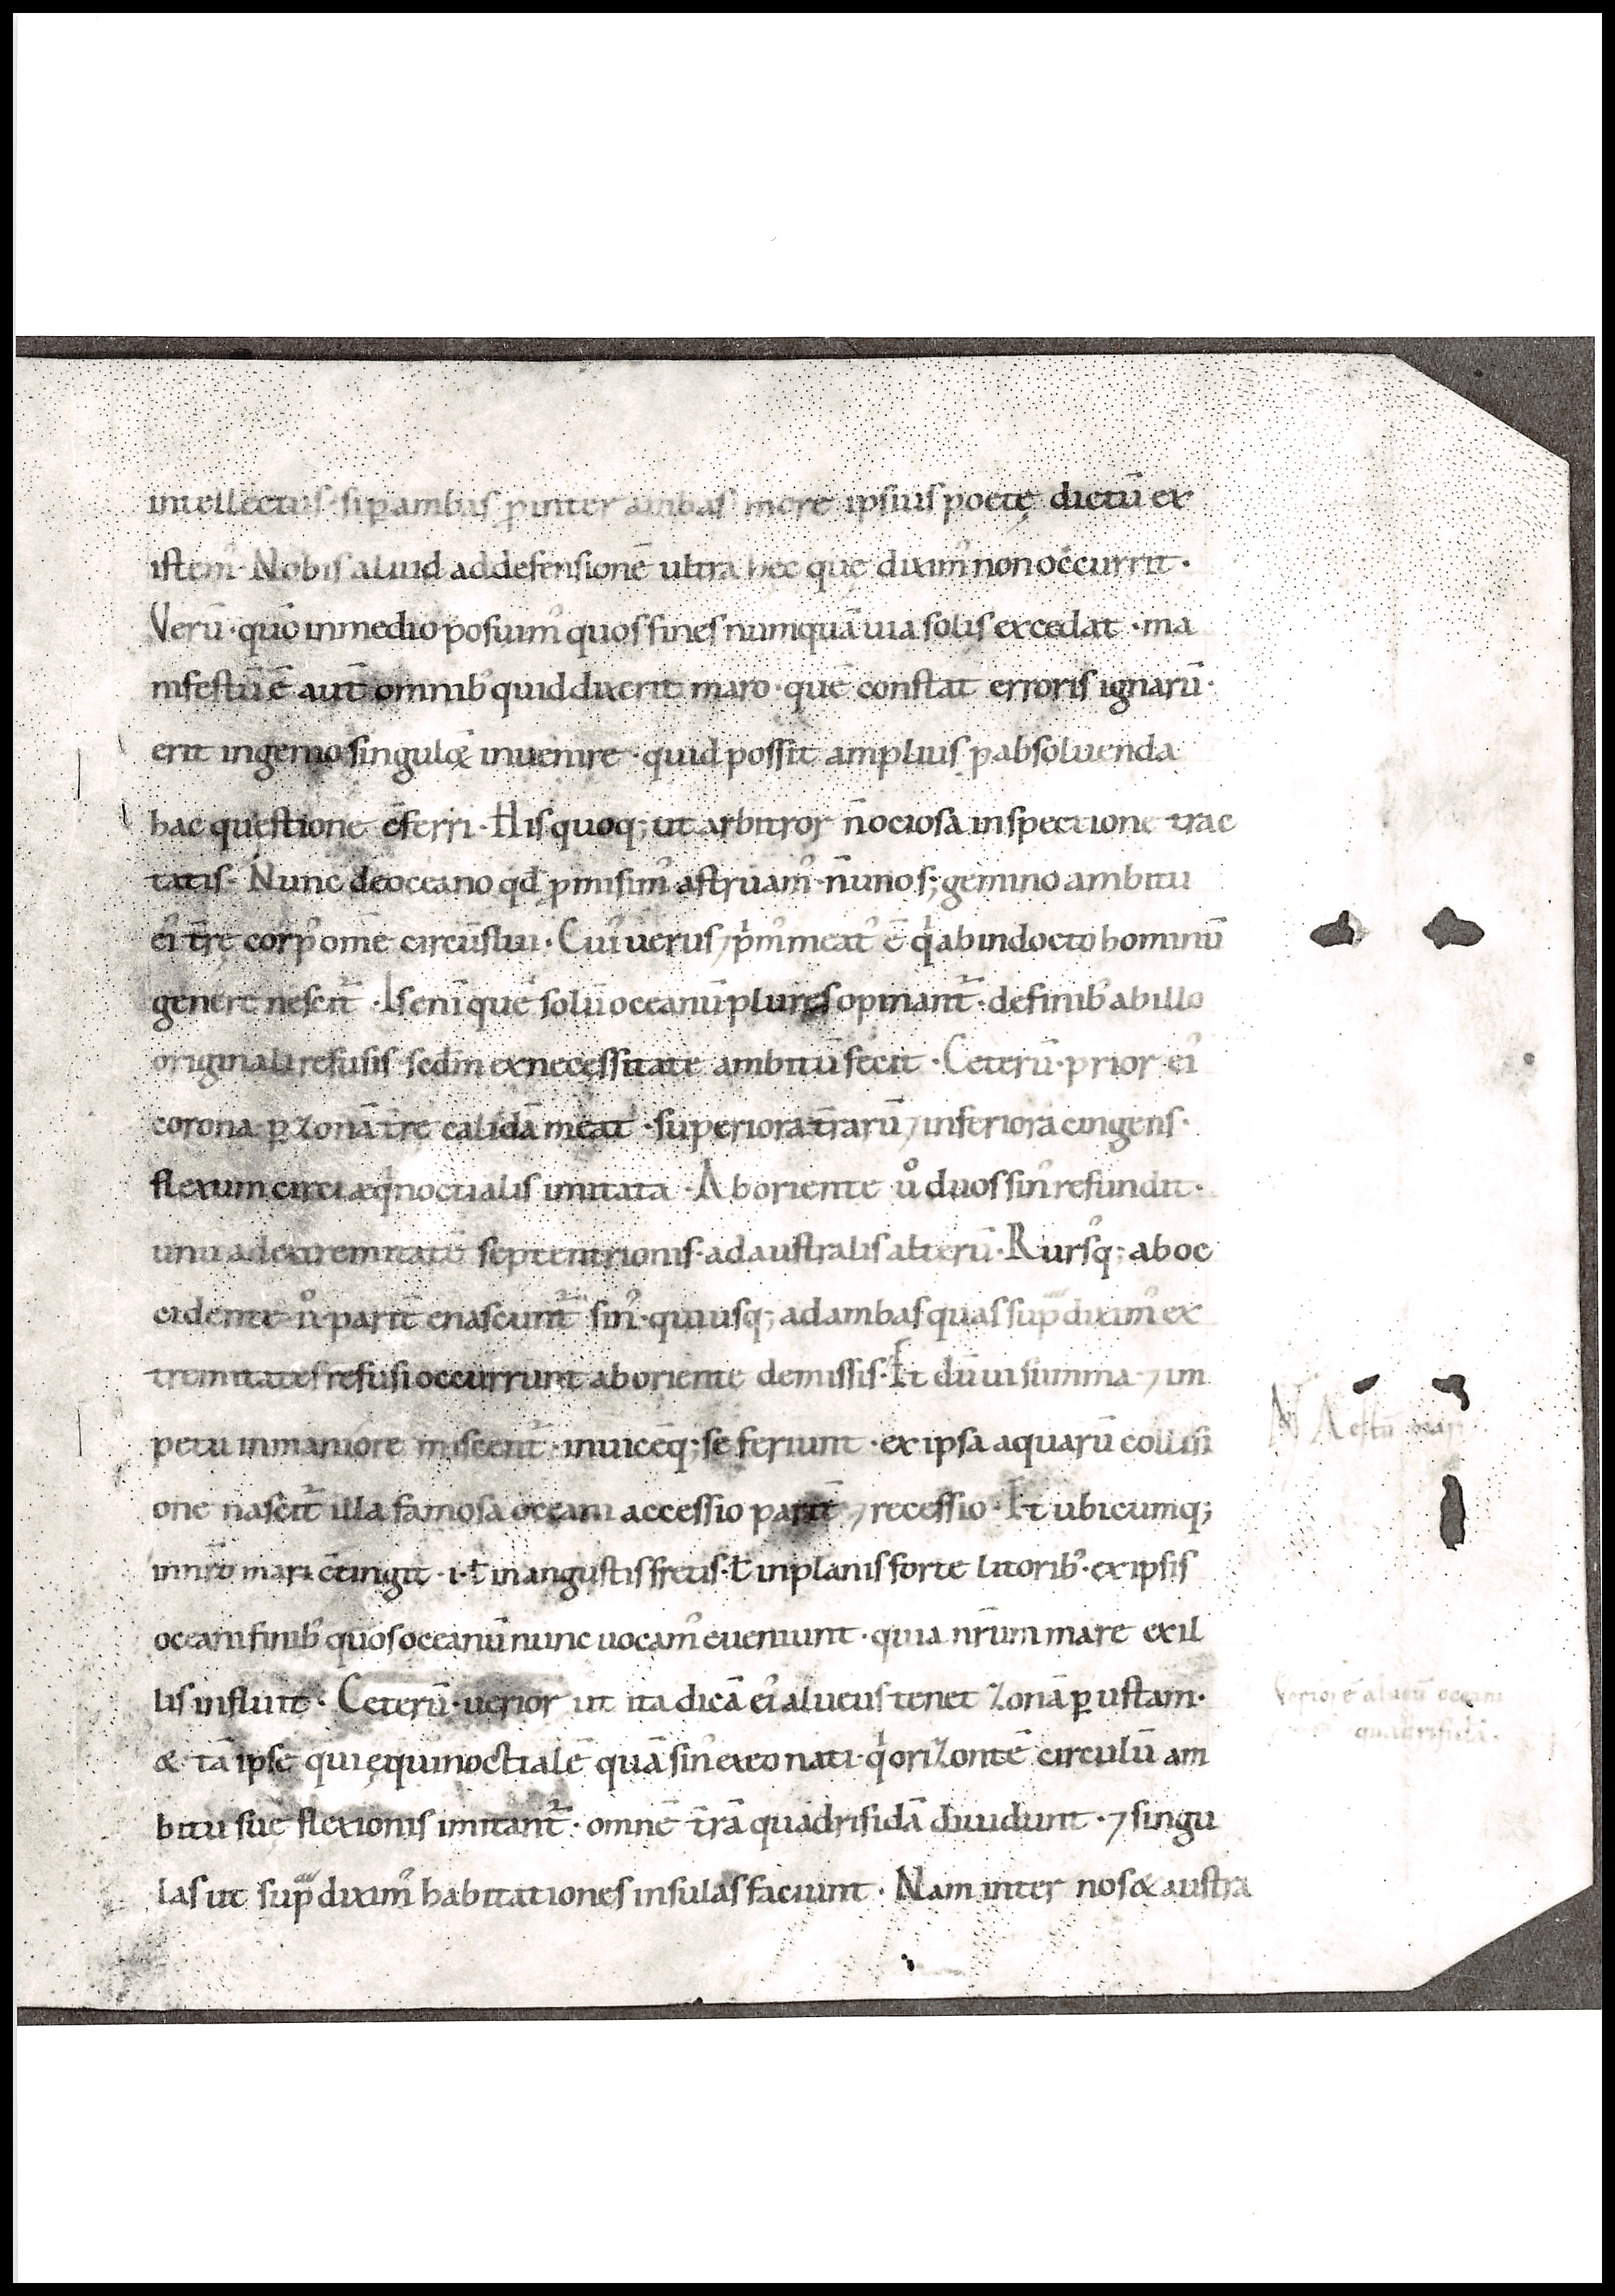 intellectus · si p̱ ambas p̄ inter ambas mcre ipsius poetę dictū ex
istem᾽ · Nobis aliud ad defensionē ultra hęc quę dixim᾽ non occurrit ·
Verū · quō in medio posuim᾽ quos fines numquā uia solis excedat · ma
nifestū ē aut̄ omnib᾽ quid dixerit maro · quē constat erroris ignarū ·
erit ingenio singulo⁊ inuenire · quid possit amplius p̄ absoluenda
hac questione c̄ferri · His quoq; ut arbitror n̄ ociosa inspectione trac
tatis · Nunc de oceano qd̄ p̄misim᾽ astruam᾽ · n̄ uno s; gemino ambitu
ei᾽ tr̄ę corp᾽ om̄e circūflui · Cui᾽ uerus ⁊ p̍m᾽ meat᾽ ē q̍ ab indocto hominū
genere nescit᷑ · Is eni̅ que᾽ solū oceanū plures opinant᷑ · de finib᾽ ab illo
originali refusis · sedm ex necessitate ambitū fecit · Ceterū · prior ei᾽
corona p̱ zonā tr̄e calidā meat · superiora tr̄arū ⁊ inferiora cingens ·
flexum circi æq̍noctialis imitata · Ab oriente ů duos sin᾽ refundit ·
unū ad extremitatē septentrionis · ad australis alterū · Rurs᾽q; ab oc
cidente ů · parit᷑ enascunt᷑ sin᾽ · qui usq; ad ambas quas sup̄ dixim᾽ ex
tremitates refusi occurrunt ab oriente demissis · Et dū ui summa · ⁊ im
petu inmaniore miscent᷑ · inuicēq; se feriunt · ex ipsa aquarū collisi
one nascit᷑ illa famosa oceani accessio parit᷑ ⁊ recessio · Et ubicumq;
in nr̄o mari c̄tingit · i · ł in angustis fretis · ł in planis forte litorib᾽ · ex ipsis
oceani finib᾽ quos oceanū nunc uocam᾽ eueniunt · quia nr̄um mare ex il
lis influit · Ceterū · uerior ut ita dicā ei᾽ alueus tenet zonā p̱ustam ·
& tā ipse qui ęquinoctialē quā sin᾽ ex eo nati · q̍ orizontē circulū am
bitu suę flexionis imitant᷑ · omnē tr̄ā quadrifidā diuidunt · ⁊ singu
las ut sup̄ dixim᾽ habitationes insulas faciunt · Nam inter nos & austra
Verior ē alueū oceani
quadrifidā ·